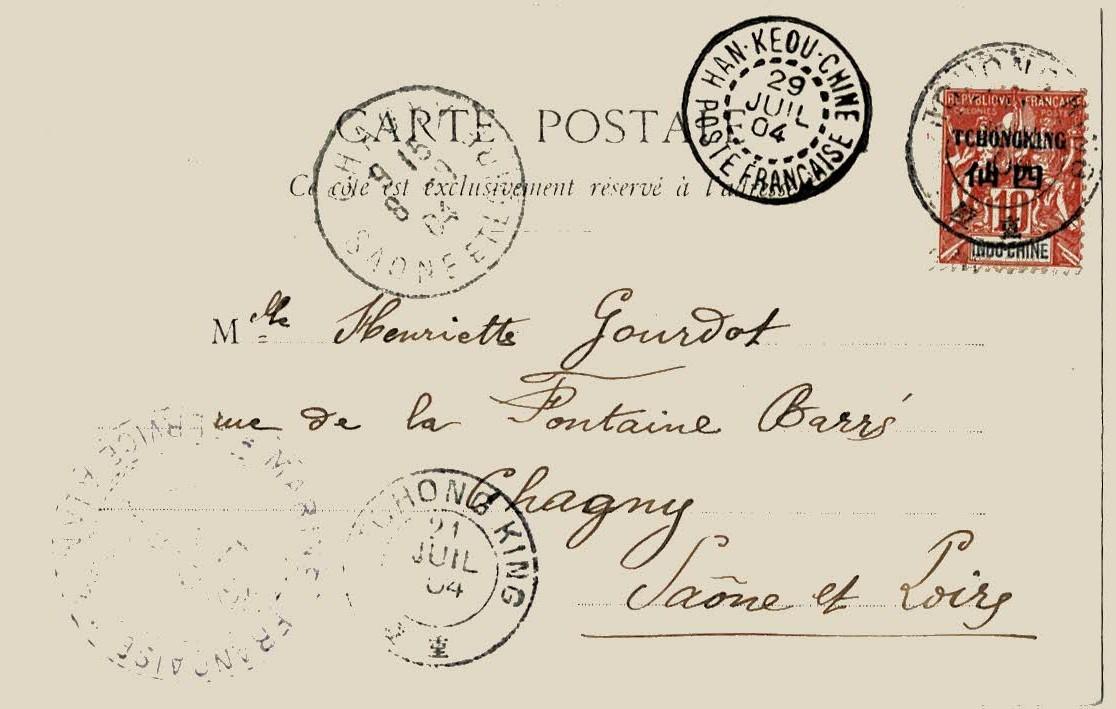 HAN-KEOU-CHINE
29
JUIL
04
POSTE FRANÇAISE
REPUBLIQUE FRANÇAISE
COLONIES POSTES
TCHONGKING
仙四
10
INDO-CHINE
CARTE POSTALE
Ce côté est exclusivement réservé à l'adresse
CHAGNY
15
8 9
04
SAONE ET LOIRE
Mlle Henriette Gourdot
rue de la Fontaine Barré
Chagny
Saône et Loire
TCHONG KING
21
JUIL
04
重
MARINE FRANÇAISE